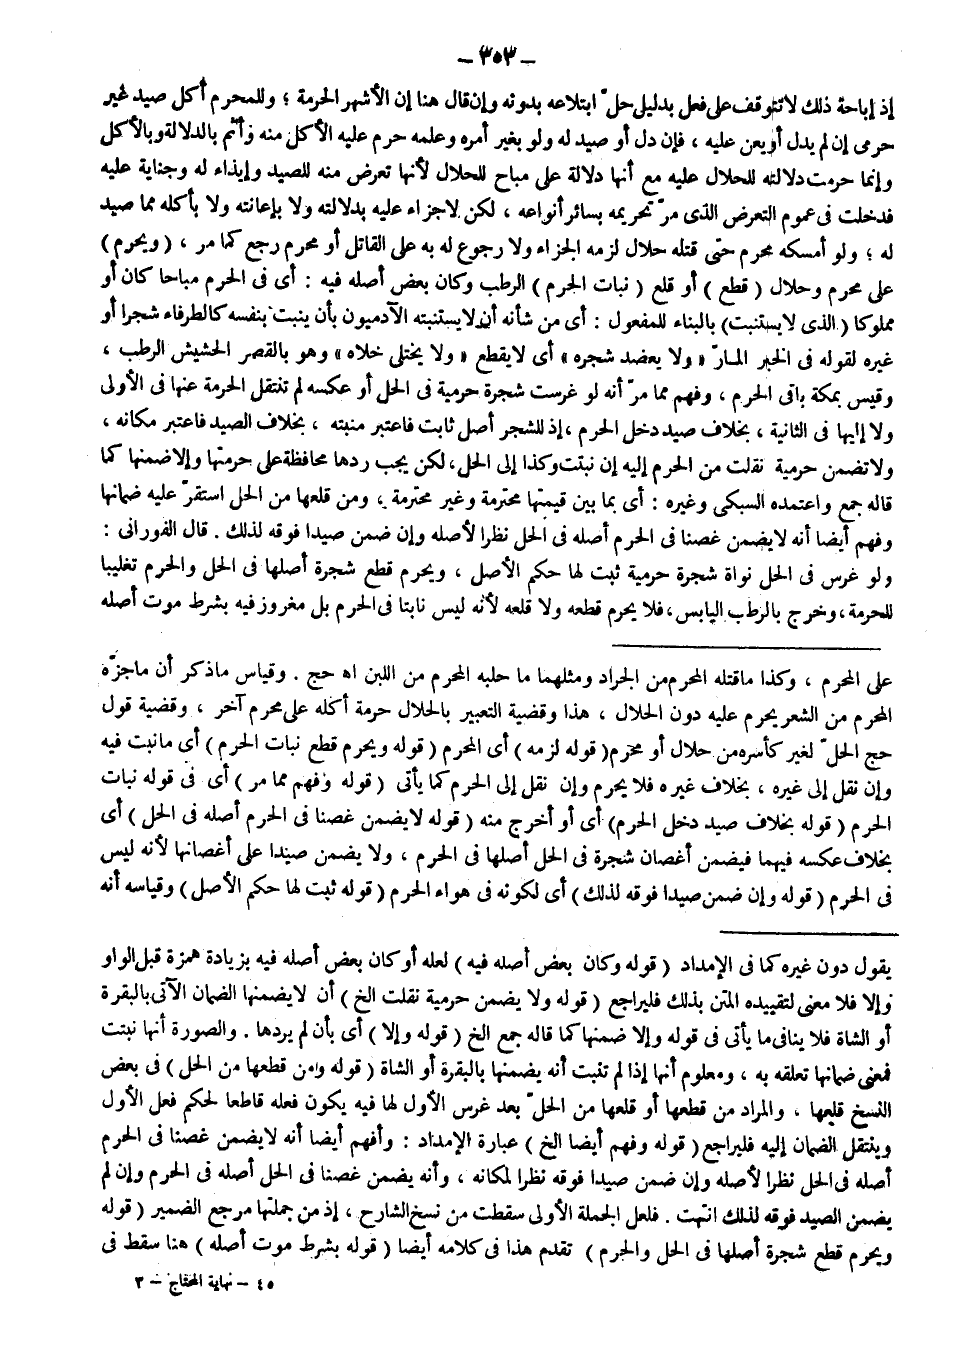 - ٣٥٣ -
إذ إباحة ذلك لاتتوقف على فعل بدليلى حلّ ابتلاعه بدونه وإن قال هنا إن الأشهر الحرمة ؛ وللمحرم أكل صيد غير
حرمى إن لم يدل أو يعن عليه ، فإن دل أو صيد له ولو بغير أمره وعلمه حرم عليه الأكل منه وأثم بالدلالة وبالأكل
وإنما حرمت دلالته للحلال عليه مع أنها دلالة على مباح للحلال لأنها تعرض منه للصيد وإيذاء له وجناية عليه
فدخلت فى عموم التعرض الذى مرّ تحريمه بسائر أنواعه ، لكن لاجزاء عليه بدلالته ولا بإعانته ولا بأكله مما صيد
له ؛ ولو أمسكه محرم حتى قتله حلال لزمه الجزاء ولا رجوع له به على القاتل أو محرم رجع كما مر ، ( ويحرم )
على محرم وحلال ( قطع ) أو قلع ( نبات الحرم ) الرطب وكان بعض أصله فيه : أى فى الحرم مباحا كان أو
مملوكا ( الذى لايستنبت ) بالبناء للمفعول : أى من شأنه أن لايستنبته الآدميون بأن ينبت بنفسه كالطرفاء شجرا أو
غيره لقوله فى الخبر المارّ « ولا يعضد شجره » أى لايقطع « ولا يختلى خلاه » وهو بالقصر الحشيش الرطب ،
وقيس بمكة باقى الحرم ، وفهم مما مرّ أنه لو غرست شجرة حرمية فى الحل أو عكسه لم تنتقل الحرمة عنها فى الأولى
ولا إليها فى الثانية ، بخلاف صيد دخل الحرم ، إذ للشجر أصل ثابت فاعتبر منبته ، بخلاف الصيد فاعتبر مكانه ،
ولا تضمن حرمية نقلت من الحرم إليه إن نبتت وكذا إلى الحل، لكن يجب ردها محافظة على حرمتها وإلا ضمنها كما
قاله جمع واعتمده السبكى وغيره : أى بما بين قيمتها محترمة وغير محترمة ، ومن قلعها من الحل استقرّ عليه ضمانها
وفهم أيضا أنه لايضمن غصنا فى الحرم أصله فى الحل نظرا لأصله وإن ضمن صيدا فوقه لذلك . قال الفورانى :
ولو غرس فى الحل نواة شجرة حرمية ثبت لها حكم الأصل ، ويحرم قطع شجرة أصلها فى الحل والحرم تغليبا
للحرمة ، وخرج بالرطب اليابس ، فلا يحرم قطعه ولا قلعه لأنه ليس نابتا فى الحرم بل مغروز فيه بشرط موت أصله
على المحرم ، وكذا ماقتله المحرم من الجراد ومثلهما ما حلبه المحرم من اللبن اه حج . وقياس ماذكر أن ماجزّه
المحرم من الشعر يحرم عليه دون الحلال ، هذا وقضية التعبير بالحلال حرمة أكله على محرم آخر ، وقضية قول
حج الحلّ لغير كأسره من حلال أو محرم ( قوله لزمه ) أى المحرم ( قوله ويحرم قطع نبات الحرم ) أى مانبت فيه
وإن نقل إلى غيره ، بخلاف غيره فلا يحرم وإن نقل إلى الحرم كما يأتى ( قوله وفهم مما مر ) أى فى قوله نبات
الحرم ( قوله بخلاف صيد دخل الحرم) أى أو أخرج منه ( قوله لايضمن غصنا فى الحرم أصله فى الحل ) أى
بخلاف عكسه فيهما فيضمن أغصان شجرة فى الحل أصلها فى الحرم ، ولا يضمن صيدا على أغصانها لأنه ليس
فى الحرم ( قوله وإن ضمن صيدا فوقه لذلك ) أى لكونه فى هواء الحرم ( قوله ثبت لها حكم الأصل ) وقياسه أنه
يقول دون غيره كما فى الإمداد ( قوله وكان بعض أصله فيه ) لعله أو كان بعض أصله فيه بزيادة همزة قبل الواو
وإلا فلا معنى لتقييده المتن بذلك فليراجع ( قوله ولا يضمن حرمية نقلت الخ ) أن لايضمنها الضمان الآتى بالبقرة
أو الشاة فلا ينافى ما يأتى فى قوله وإلا ضمنها كما قاله جمع الخ ( قوله وإلا ) أى بأن لم يردها . والصورة أنها نبتت
فمعنى ضمانها تعلقه به ، ومعلوم أنها إذا لم تنبت أنه يضمنها بالبقرة أو الشاة ( قوله ومن قطعها من الحل ) فى بعض
النسخ قلعها ، والمراد من قطعها أو قلعها من الحلّ بعد غرس الأول لها فيه يكون فعله قاطعا لحكم فعل الأول
وينتقل الضمان إليه فليراجع ( قوله وفهم أيضا الخ ) عبارة الإمداد : وأفهم أيضا أنه لايضمن غصنا فى الحرم
أصله فى الحل نظرا لأصله وإن ضمن صيدا فوقه نظرا لمكانه ، وأنه يضمن غصنا فى الحل أصله فى الحرم وإن لم
يضمن الصيد فوقه لذلك انتهت . فلعل الجملة الأولى سقطت من نسخ الشارح ، إذ من جملتها مرجع الضمير ( قوله
ويحرم قطع شجرة أصلها فى الحل والحرم ) تقدم هذا فى كلامه أيضا ( قوله بشرط موت أصله ) هنا سقط فى
٤٥ - نهاية المحتاج - ٣